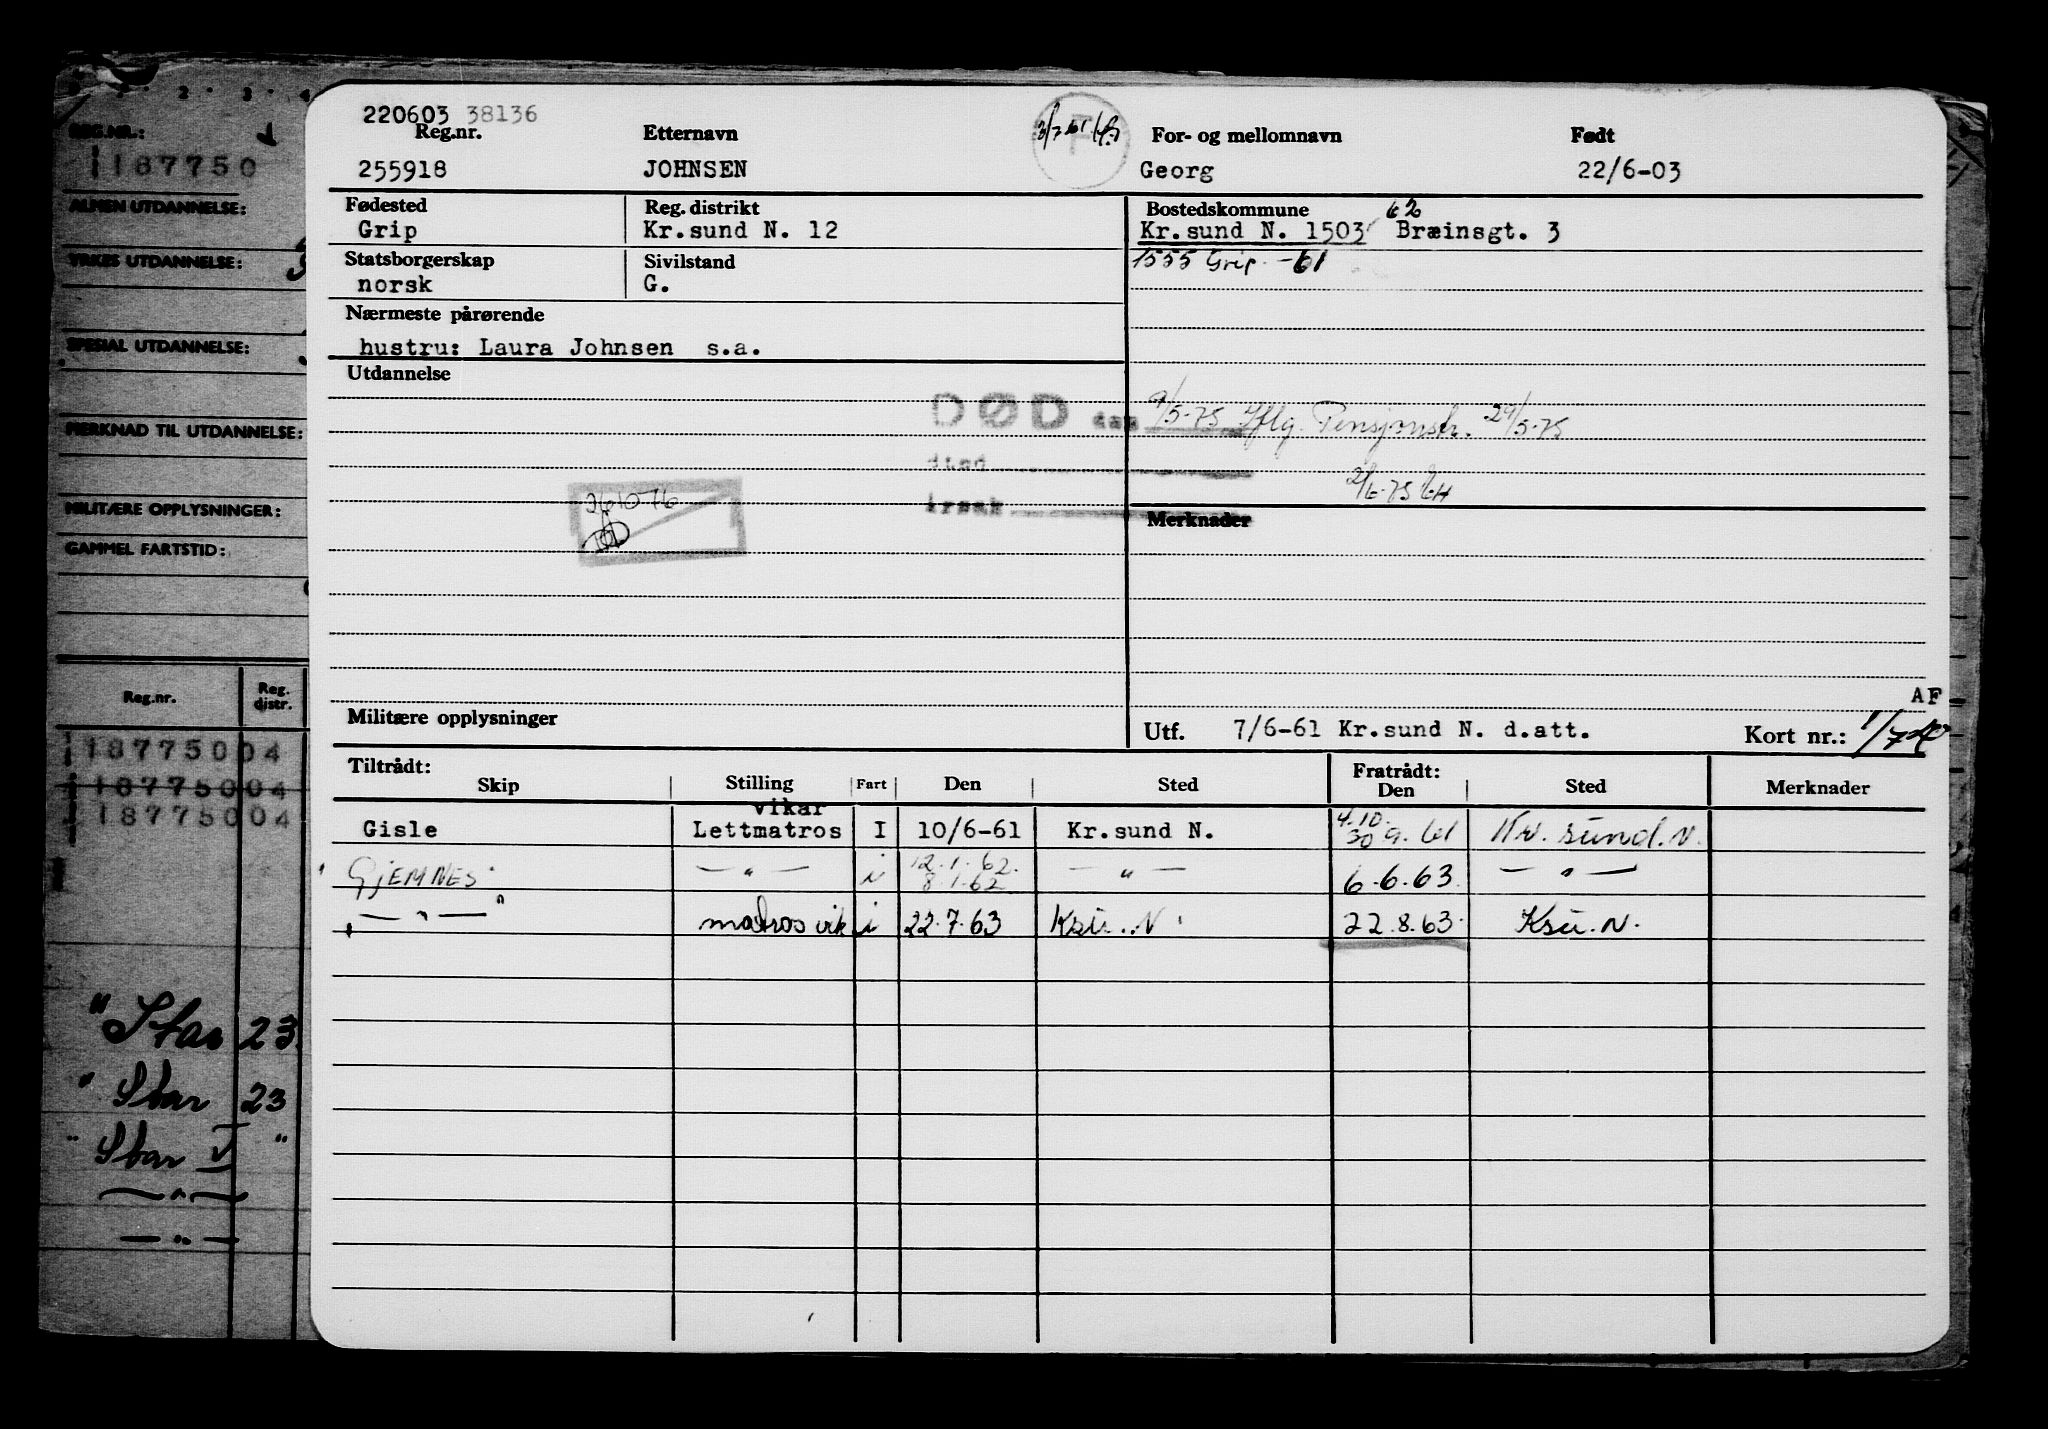 220603 38136
Reg.nr. Etternavn For- og mellomnavn Født
255918 JOHNSEN Georg 22/6-03
Fødested Reg. distrikt Bostedskommune 62
Grip Kr.sund N. 12 Kr.sund N. 1503 Bræinsgt. 3
Statsborgerskap Sivilstand 1555 Grip -61
norsk G.
Nærmeste pårørende
hustru: Laura Johnsen s.a.
Utdannelse
DØD den 9/5-75 iflg. Pensjonstr. 29/5-75
sted
2/6-75 EH
årsak
261076
Merknader
AF
Militære opplysninger Utf. 7/6-61 Kr.sund N. d.att. Kort nr.: 1/7
Tiltrådt: Fratrådt:
Skip Stilling Fart Den Sted Den Sted Merknader
vikar 4.10.
Gisle Lettmatros I 10/6-61 Kr.sund N. 30 9. 61 Kr. sund. N.
12.1.62.
GJEMNES — " — i 8.1.62 — " — 6.6.63. — " —
— " — " matros vik i 22.7.63 Ksu. N. 22.8.63. Ksu. N.
2 3 4
REG.NR.:
187750
ALMEN UTDANNELSE:
YRKES UTDANNELSE:
SPESIAL UTDANNELSE:
MERKNAD TIL UTDANNELSE:
MILITÆRE OPPLYSNINGER:
GAMMEL FARTSTID:
Reg.nr. Reg. distr.
187750 04
187750 04
187750 04
" Star 23
" Star 23
" Star V "
— " —
— " —